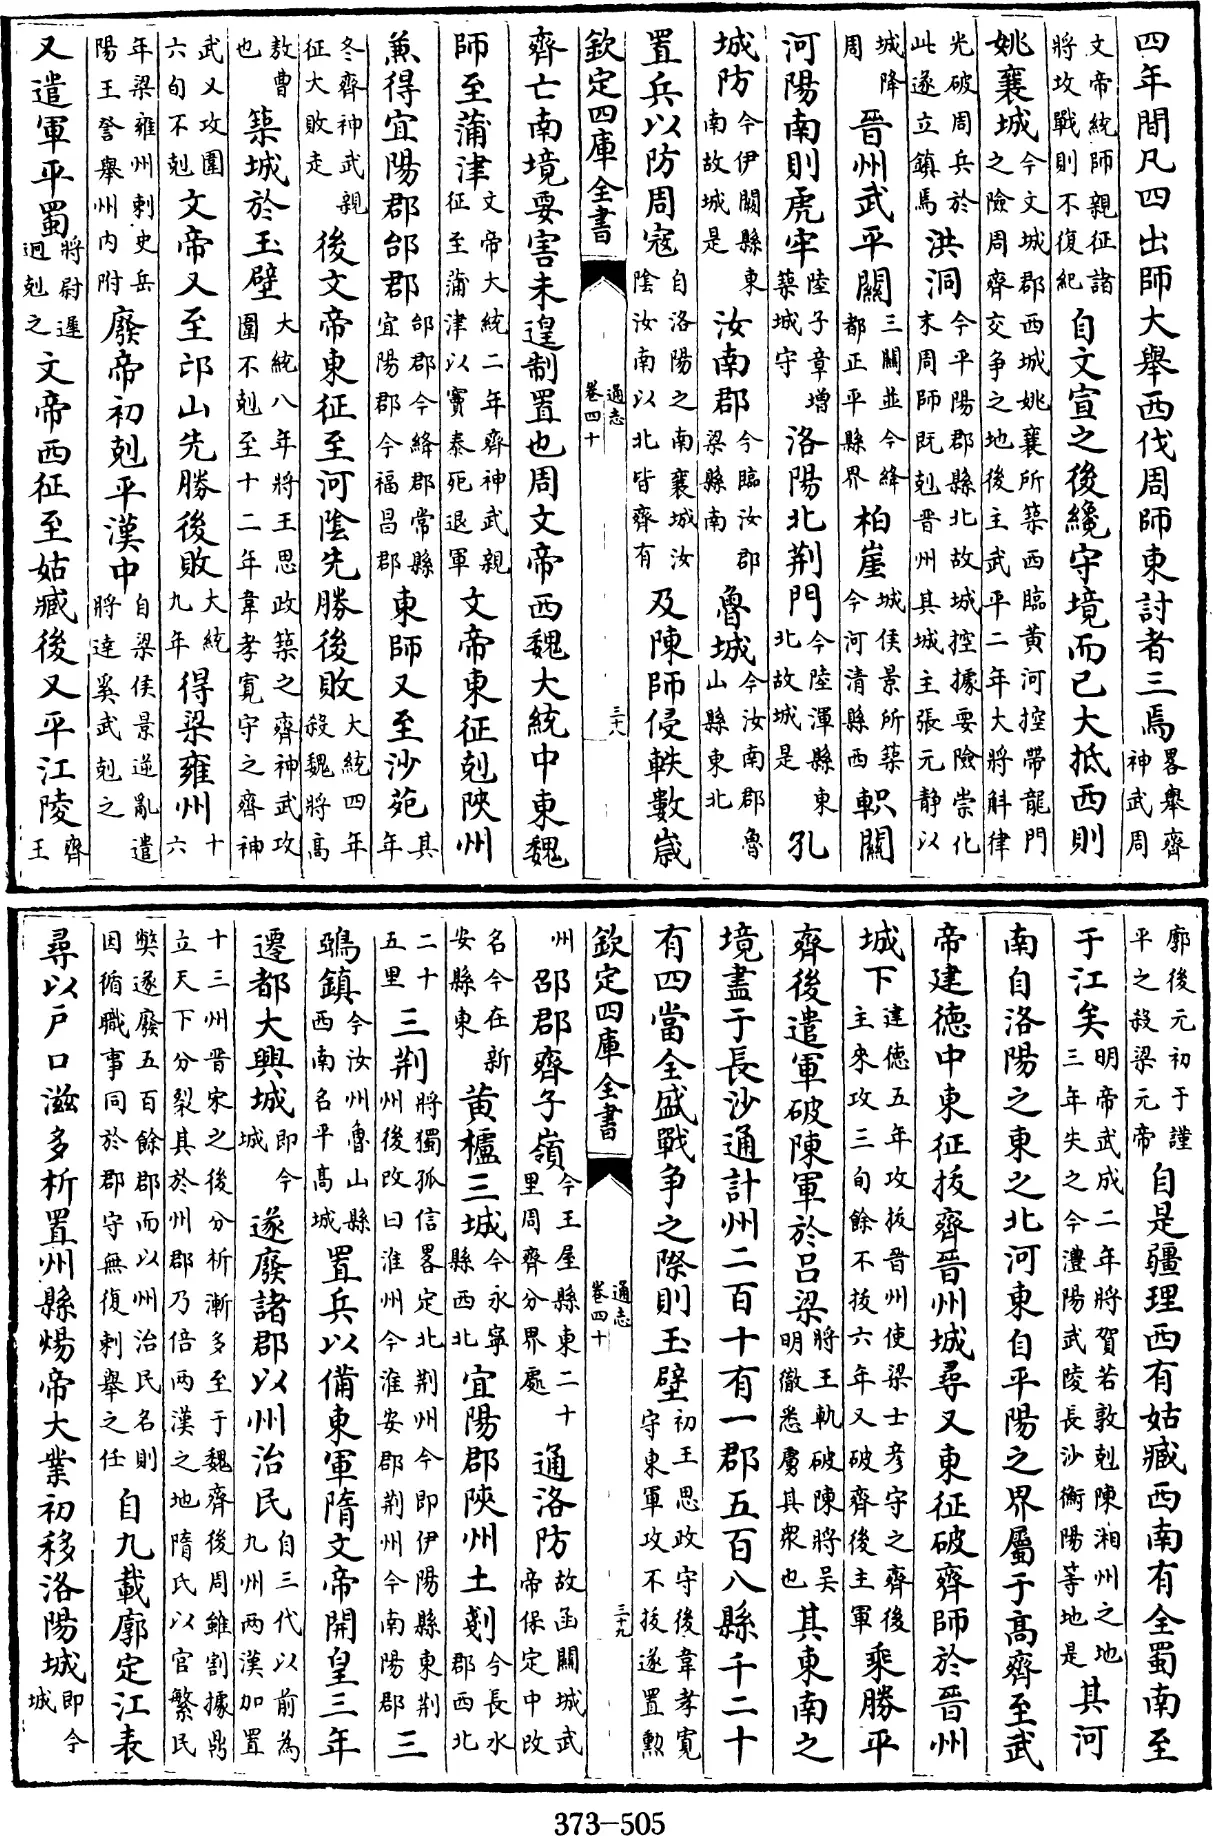 四年間凡四出師大舉西伐周師東討者三焉畧舉齊神武周
文帝統師親征諸將攻戰則不復紀自文宣之後纔守境而已大抵西則
姚襄城今文城郡西城姚襄所築西臨黄河控帶龍門之險周齊交争之地後主武平二年大將斛律
光破周兵於此遂立鎮焉洪洞今平陽郡縣北故城控據要險崇化末周師既剋晉州其城主張元静以
城降周晉州武平關三關並今絳都正平縣界柏崖城侯景所築今河清縣西軹關
河陽南則虎牢陸子章增築城守洛陽北荆門今陸渾縣東北故城是孔
城防今伊闕縣東南故城是汝南郡今臨汝郡梁縣南魯城今汝南郡魯山縣東北
置兵以防周寇自洛陽之南襄城汝陰汝南以北皆齊有及陳師侵軼數嵗
欽定四庫全書 通志卷四十 三十八
齊亡南境要害未遑制置也周文帝西魏大統中東魏
師至蒲津文帝大統二年齊神武親征至蒲津以竇泰死退軍文帝東征剋陝州
兼得宜陽郡邰郡邰郡今絳郡常縣宜陽郡今福昌郡東師又至沙苑其年
冬齊神武親征大敗走後文帝東征至河陰先勝後敗大統四年殺魏將高
敖曹也築城於玉壁大統八年將王思政築之齊神武攻圍不剋至十二年韋孝寛守之齊神
武又攻圍六旬不剋文帝又至邙山先勝後敗大統九年得梁雍州十六
年梁雍州刺史岳陽王詧舉州内附廢帝初剋平漢中自梁侯景逆亂遣將逹奚武剋之
又遣軍平蜀將尉遲迥剋之文帝西征至姑臧後又平江陵齊王
廓後元初于謹平之殺梁元帝自是疆理西有姑臧西南有全蜀南至
于江矣明帝武成二年將賀若敦剋陳湘州之地三年失之今澧陽武陵長沙衡陽等地是其河
南自洛陽之東之北河東自平陽之界屬于髙齊至武
帝建德中東征拔齊晉州城尋又東征破齊師於晉州
城下建德五年攻拔晉州使梁士彦守之齊後主來攻三旬餘不拔六年又破齊後主軍乘勝平
齊後遣軍破陳軍於吕梁將王軌破陳將吴明徹悉虜其衆也其東南之
境盡于長沙通計州二百十有一郡五百八縣千二十
有四當全盛戰争之際則玉壁初王思政守後韋孝寛守東軍攻不拔遂置勲
欽定四庫全書 通志卷四十 三十九
州邵郡齊子嶺今王屋縣東二十里周齊分界處通洛防故函關城武帝保定中改
名今在新安縣東黄櫨三城今永寧縣西北宜陽郡陝州土剗今長水郡西北
二十五里三荆將獨孤信畧定北荆州今即伊陽縣東荆州後改曰淮州今淮安郡荆州今南陽郡三
鵶鎮今汝州魯山縣西南名平髙城置兵以備東軍隋文帝開皇三年
遷都大興城即今城遂廢諸郡以州治民自三代以前為九州两漢加置
十三州晋宋之後分析漸多至于魏齊後周雖割據鼎立天下分裂其於州郡乃倍兩漢之地隋氏以官繁民
弊遂廢五百餘郡而以州治民名則因循職事同於郡守無復刺舉之任自九載廓定江表
尋以戸口滋多析置州縣煬帝大業初移洛陽城即今城
373-505